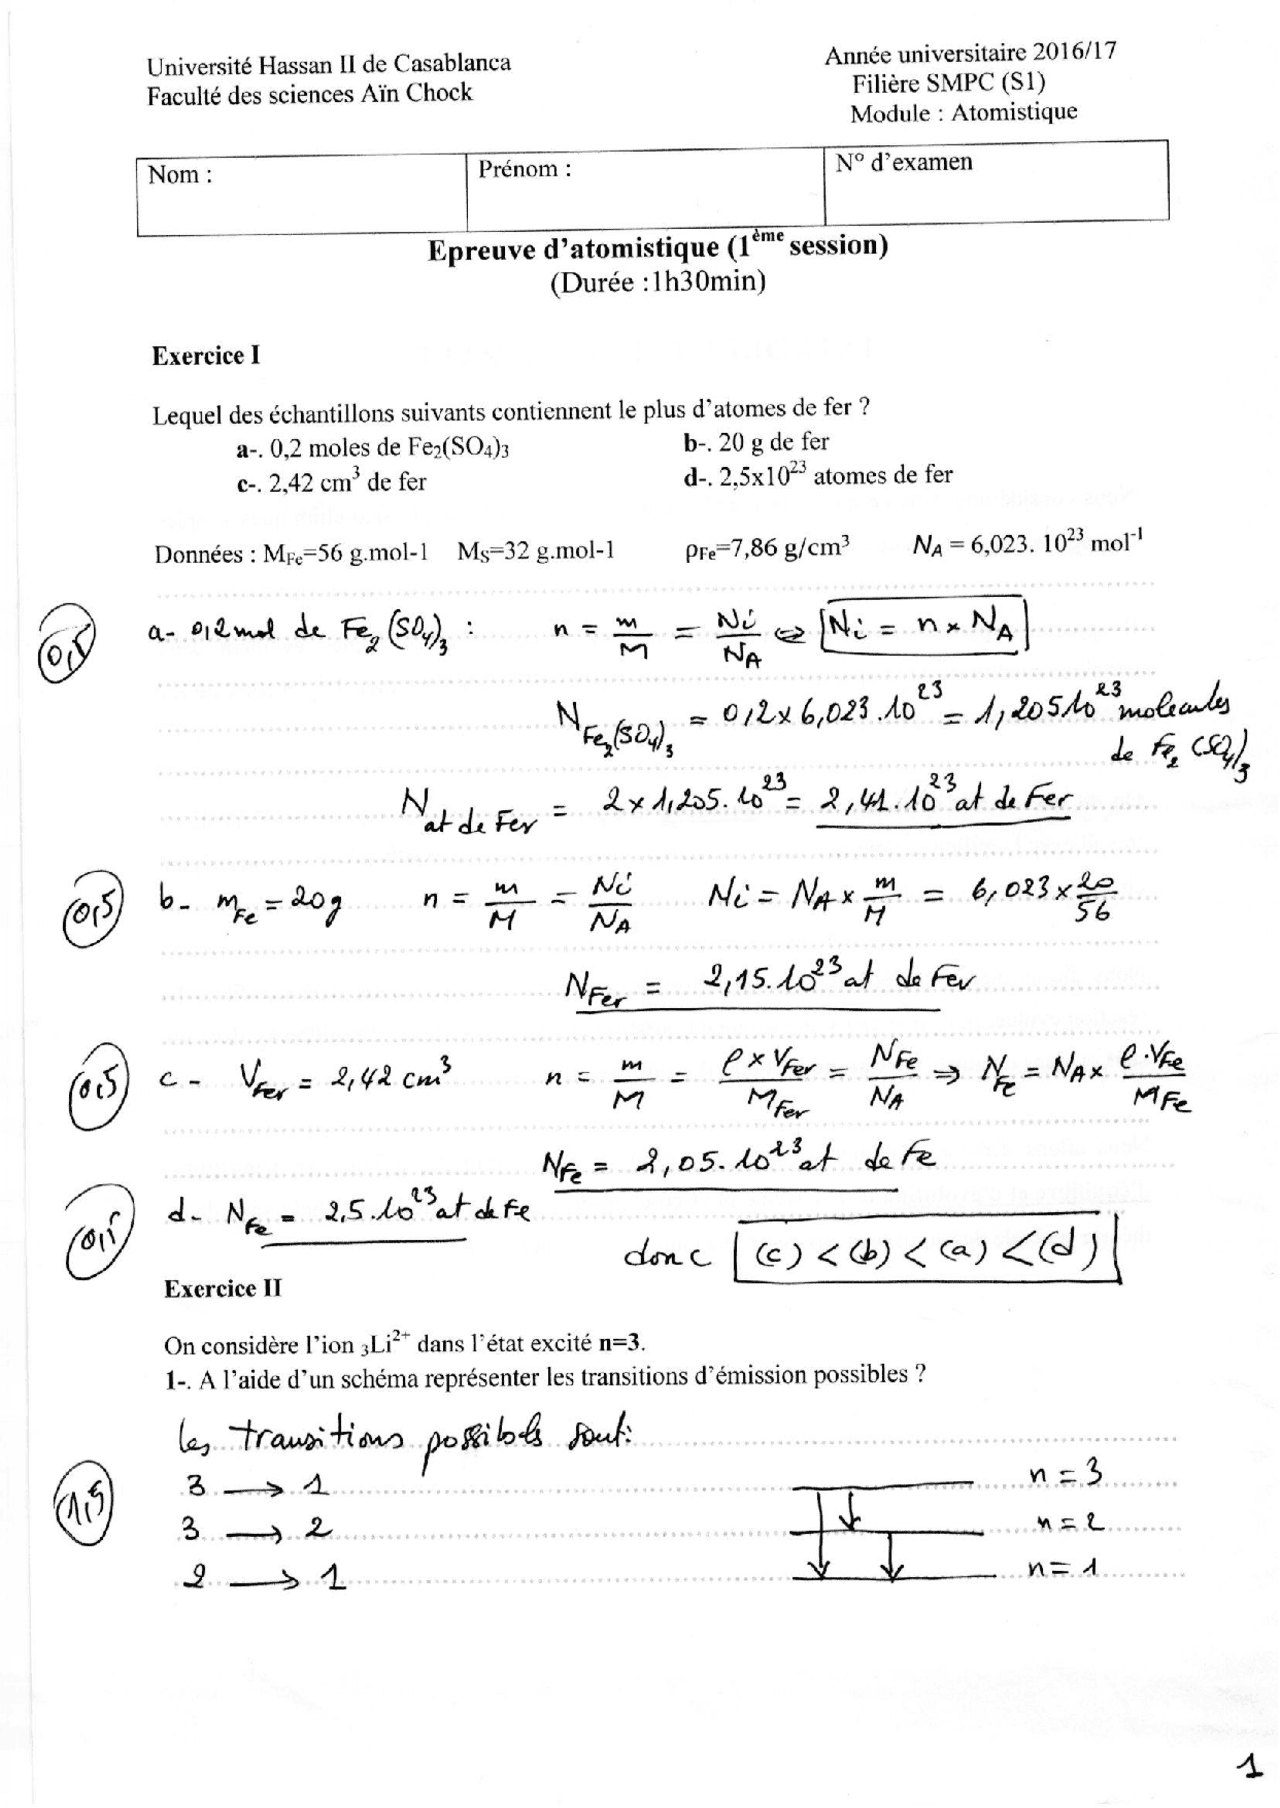 Université Hassan II de Casablanca
Faculté des sciences Aïn Chock
Année universitaire 2016/17
Filière SMPC (S1)
Module : Atomistique
Nom :
Prénom :
N° d'examen
Epreuve d'atomistique (1ème session)
(Durée :1h30min)
Exercice I
Lequel des échantillons suivants contiennent le plus d'atomes de fer ?
a-. 0,2 moles de Fe₂(SO₄)₃ b-. 20 g de fer
c-. 2,42 cm³ de fer d-. 2,5x10²³ atomes de fer
Données : M_Fe=56 g.mol-1 M_S=32 g.mol-1 ρFe=7,86 g/cm³ N_A = 6,023. 10²³ mol⁻¹
0,5
a- 0,2 mol de Fe₂(SO₄)₃ : n = m/M = Ni/N_A ⇔ Ni = n x N_A
N_Fe₂(SO₄)₃ = 0,2 x 6,023.10²³ = 1,205 10²³ molecules
de Fe₂(SO₄)₃
N_at de Fer = 2 x 1,205.10²³ = 2,41.10²³ at de Fer
0,5
b- m_Fe = 20g n = m/M = Ni/N_A Ni = N_A x m/M = 6,023 x 20/56
N_Fer = 2,15.10²³ at de Fer
0,5
c- V_Fer = 2,42 cm³ n = m/M = ρ x V_Fer/M_Fer = N_Fe/N_A ⇒ N_Fe = N_A x ρ.V_Fe/M_Fe
N_Fe = 2,05.10²³ at de Fe
0,5
d- N_Fe = 2,5.10²³ at de Fe
donc (c) < (b) < (a) < (d)
Exercice II
On considère l'ion ₃Li²⁺ dans l'état excité n=3.
1-. A l'aide d'un schéma représenter les transitions d'émission possibles ?
les transitions possibles sont:
1,5
3 → 1 n = 3
3 → 2 n = 2
2 → 1 n = 1
1